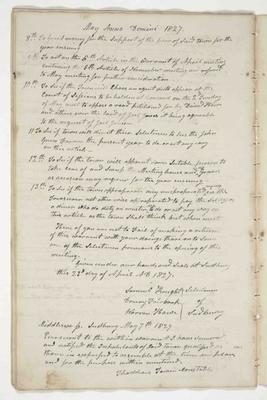 May Anno Domini 1827.
8th To grant money for the Support of the poor of said town for the
year ensuing
9th To act on the 5th Article in the Warrant of April meeting
containing the 6th Article of November meeting and refered
to May meeting for further consideration
10th To see if the Town will Chose an agent to appear at the
Court of Sessions to be holden at Concord on the Tuesday
of May next to oppose a road petitioned for by David How
and others over the land of if it being agreable
to the request of
11 To see if town will direct their Selectmen to let the John
Farm the present year to do or act any way
on this article.
12th To see if the town will appoint some Suitable person to
take care of and Sweep the Meeting house and
or occasion may require for the year ensuing
13th To see if the town appropriate any unappropriated in the
Treasurer not other wise appropriated to pay the
a dinner &c do or act any way on
this article as the town Shall think best when met
Hereof you are not to fail of making a return
of this warrant with your doings thereon to either
one of the Selectmen previous to the opening of the
meeting.
Given under our hands and Seals at Sudbury
this 23d day of April A.D. 1827.
Samuel Knight Selectmen
Drury Fairbank of
Howe Sudbury
Middlesex Ss. Sudbury May 7th 1827
Pursuant to the within warrant I have Summoned
and notifyed the Inhabitants of said Town qualifyed as
therein expressed to assemble at the time and place
and for the purpose within mentioned.
Thaddeus Constable